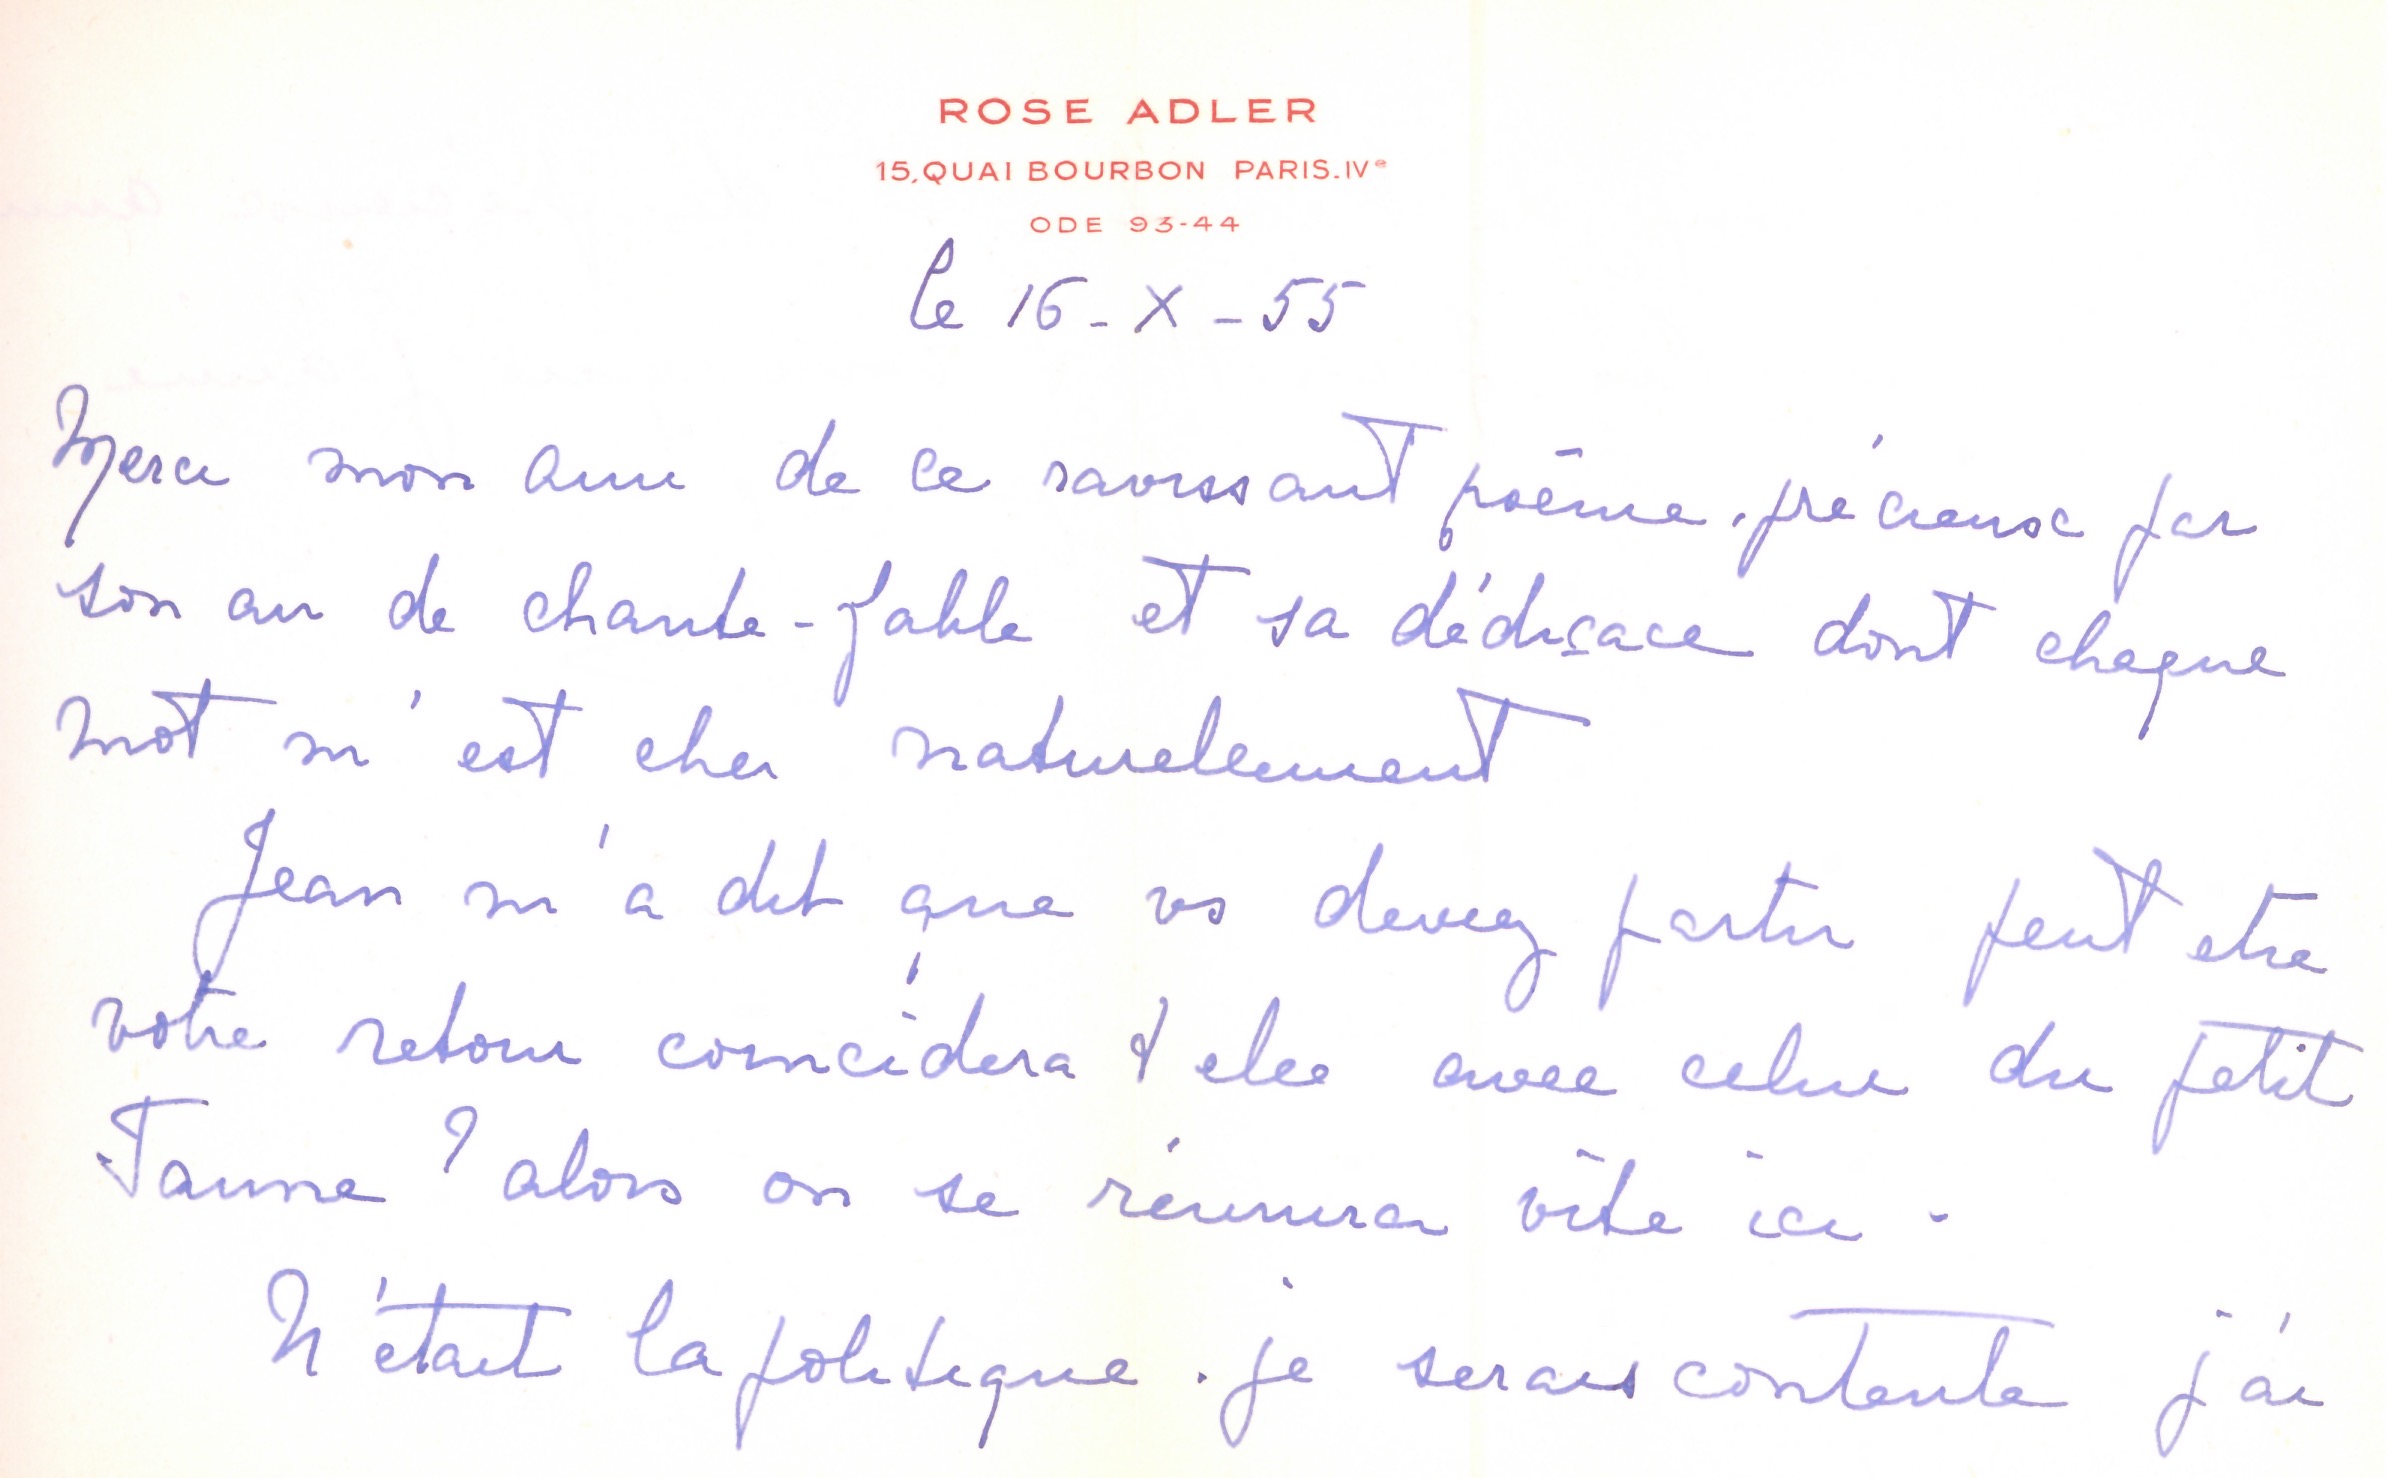 ROSE ADLER
15, QUAI BOURBON PARIS. IVe
ODE 93-44
le 16 - X - 55
Merci mon ami de ce ravissant poême, précieux par
son air de chante-fable et sa dédicace dont chaque
mot m'est cher naturellement
Jean m'a dit que vs devez partir peut etre
votre retour coincidera avec celui du petit
Jaune ? alors on se réunira vîte ici -
N'était la politique. je serais contente j'ai